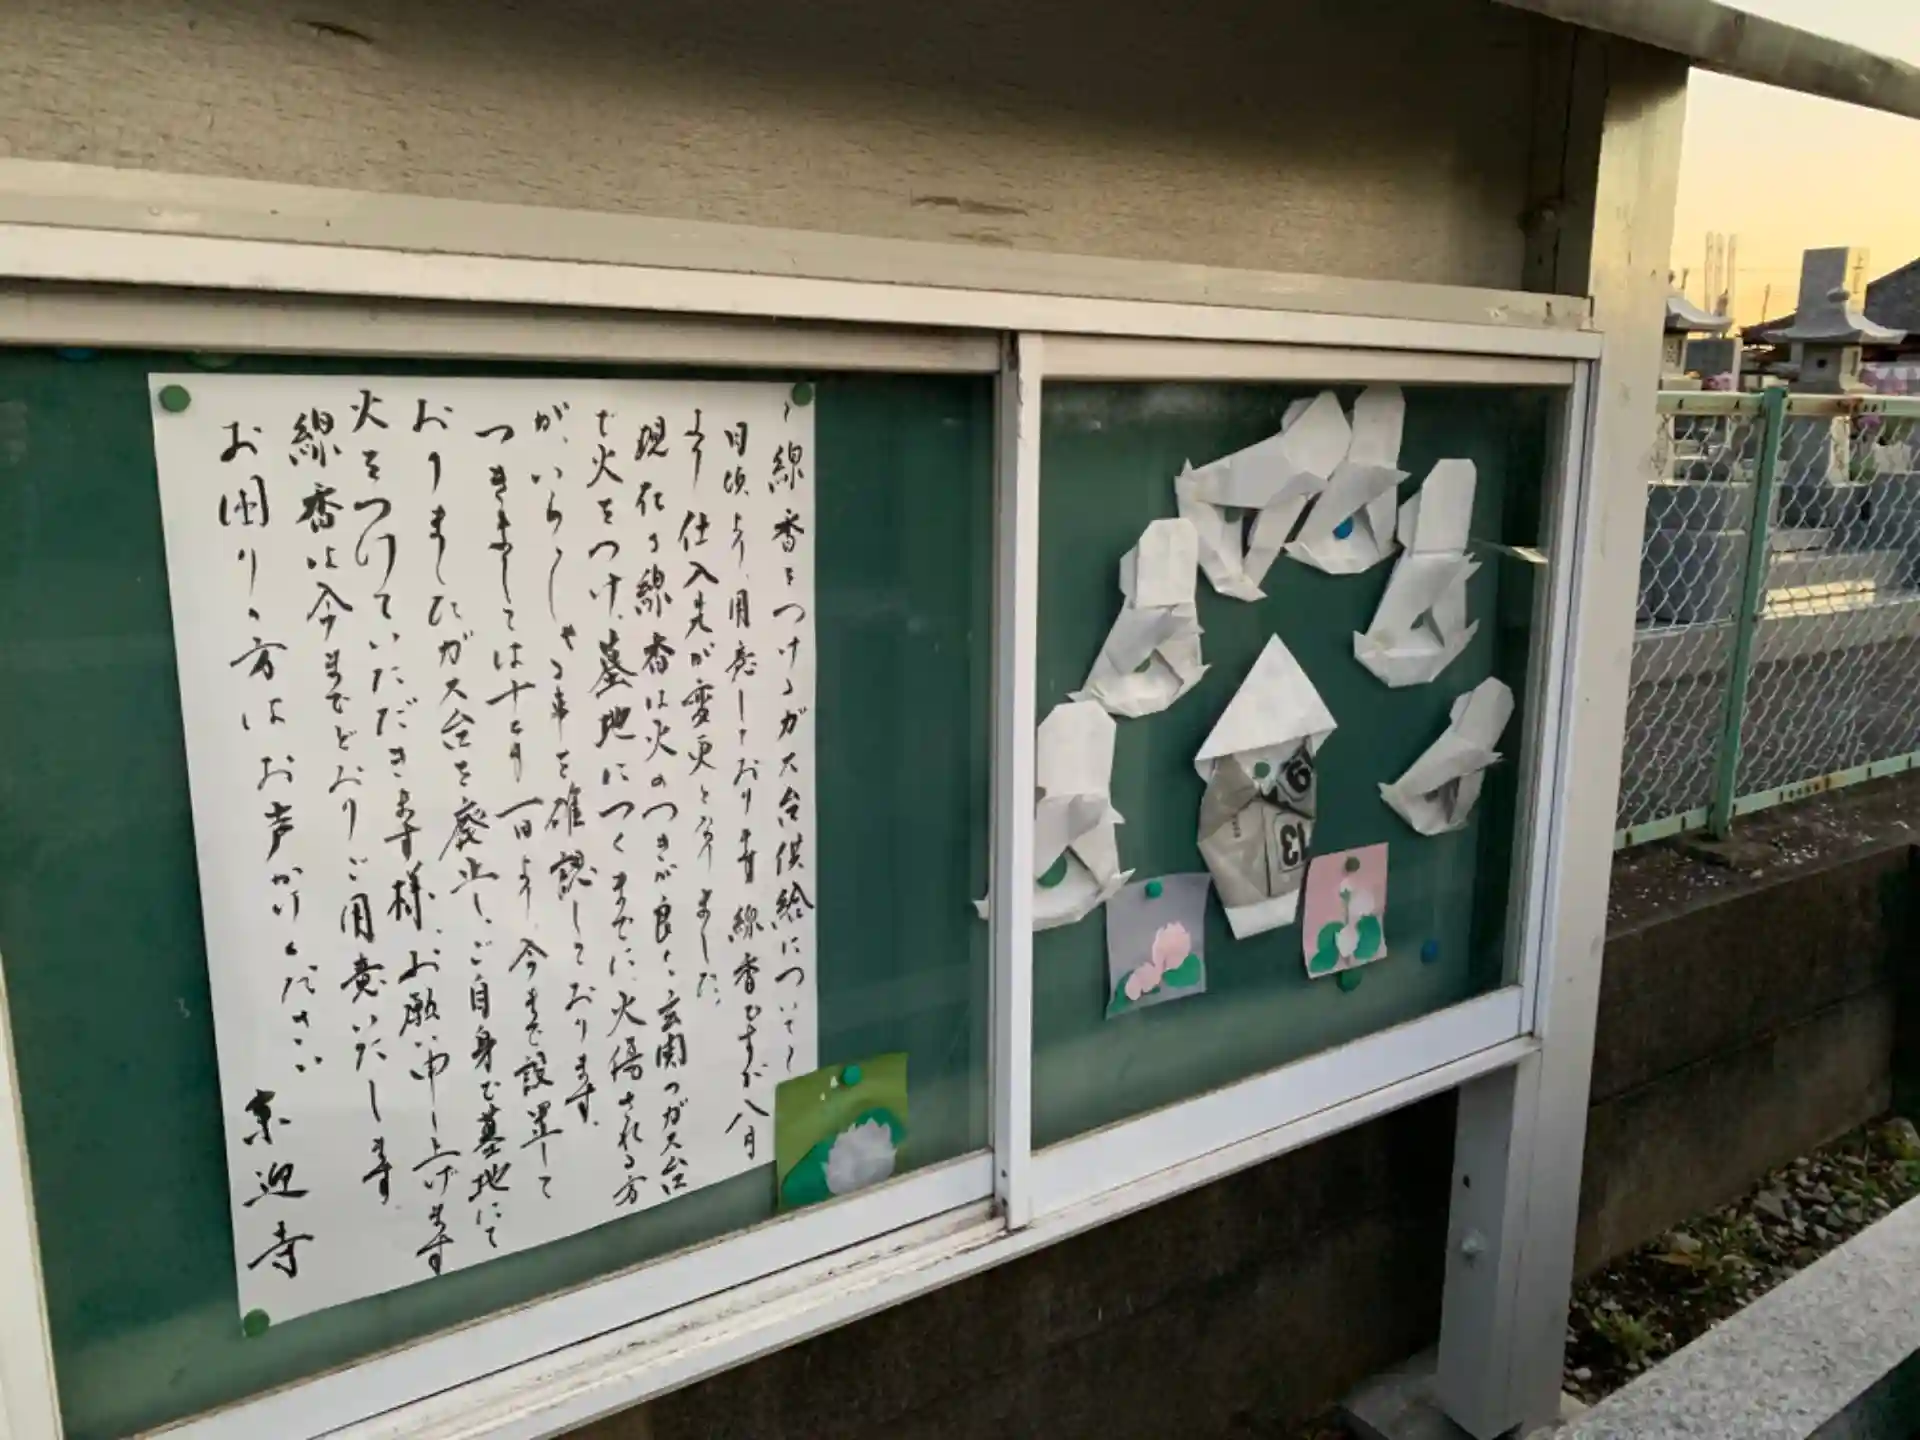 〜線香をつけるガス台供給について〜
日頃より、用意しております線香ですが八月
より仕入先が変更となりました。
現在の線香は火のつきが良く、玄関のガス台
で火をつけ、墓地につくまでに、火傷される方
が、いらっしゃる事を確認しております。
つきましては十月一日より、今まで設置して
おりましたガス台を廃止し、ご自身で墓地にて
火をつけていただきます様、お願い申し上げます
線香は今までどおりご用意いたします。
お困りの方はお声かけください
来迎寺
13